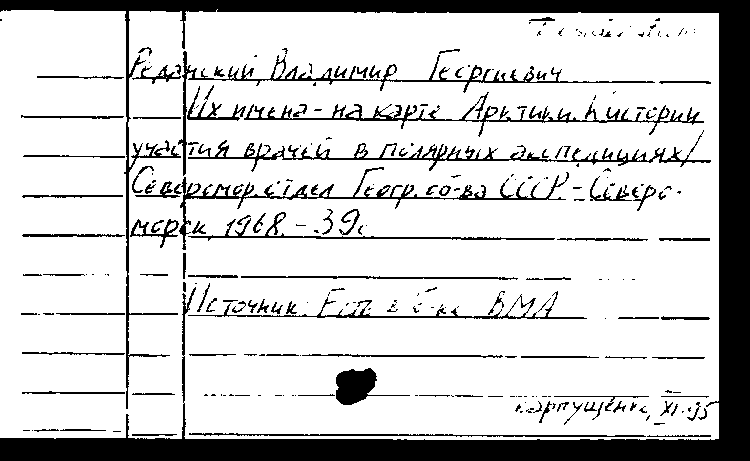 Реданский, Владимир Георгиевич
Их имена - на карте Арктики. К истории
участия врачей в полярных экспедициях/
Североморск. отдел Геогр. об-ва СССР. - Северо-
морск, 1968. - 39с.
Источник: Есть в б-ке ВМА
Карпущенко, XI-95